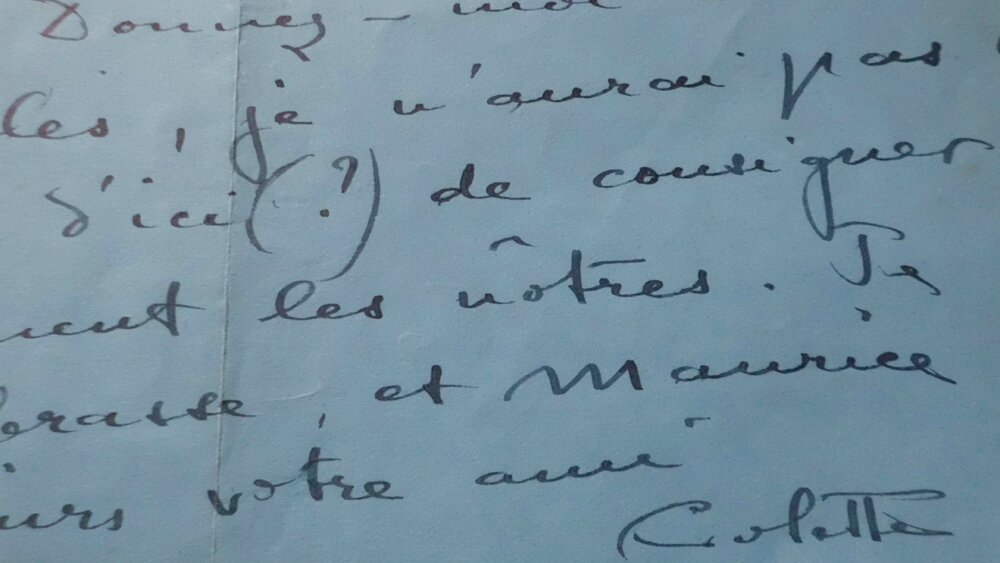 Donnez-moi
les, je n'aurai pas
d'ici (?) de consigner
ment les nôtres. Je
brasse, et Maurice
urs votre ami
Colette